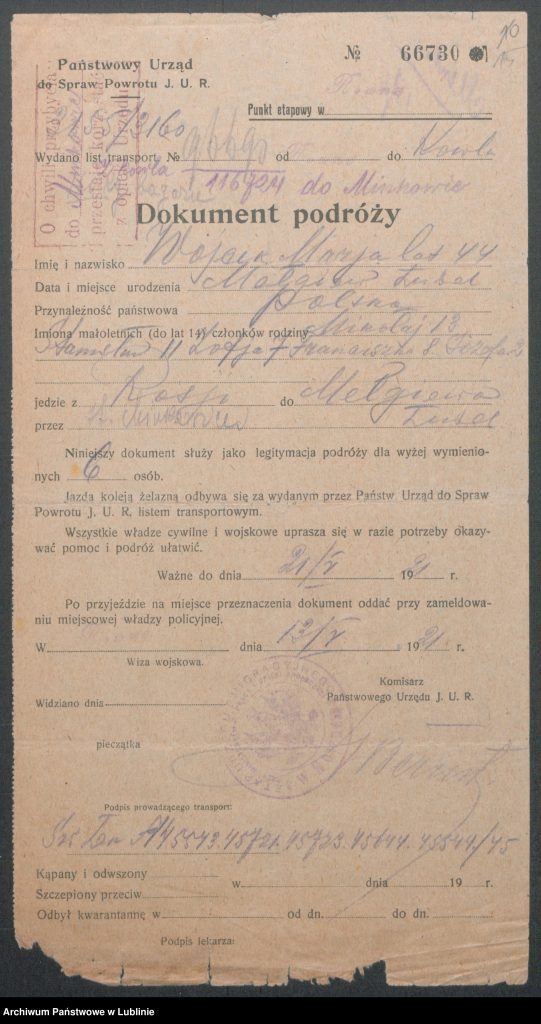 10
Państwowy Urząd
do Spraw Powrotu J. U. R.
№ 66730
Punkt etapowy w
O chwili przybycia
do
przestaje korz
z opieki Urzędu
Wydano list transport. № od do Kowla
116724 do Minkowic
Dokument podróży
Imię i nazwisko Wójcik Marja lat 44
Data i miejsce urodzenia Mełgiew Lubel
Przynależność państwowa Polska
Imiona małoletnich (do lat 14) członków rodziny Mikołaj 13
Stanisław 11 Zofja 7 Franciszka 8 Józefa 2
jedzie z Rosji do Mełgiewa
przez Lubel
Niniejszy dokument służy jako legitymacja podróży dla wyżej wymienio-
nych 6 osób.
Jazda koleją żelazną odbywa się za wydanym przez Państw Urząd do Spraw
Powrotu J. U. R, listem transportowym.
Wszystkie władze cywilne i wojskowe uprasza się w razie potrzeby okazy-
wać pomoc i podróż ułatwić.
Ważne do dnia 21/V 1921 r.
Po przyjeździe na miejsce przeznaczenia dokument oddać przy zameldowa-
niu miejscowej władzy policyjnej.
W dnia 13/V 1921 r.
Wiza wojskowa.
Komisarz
Państwowego Urzędu J. U. R.
Widziano dnia
pieczątka
Podpis prowadzącego transport:
45543.45721.45723.45644.45544/45
Kąpany i odwszony w dnia 19 r.
Szczepiony przeciw
Odbył kwarantannę w od dn. do dn.
Podpis lekarza:
Archiwum Państwowe w Lublinie